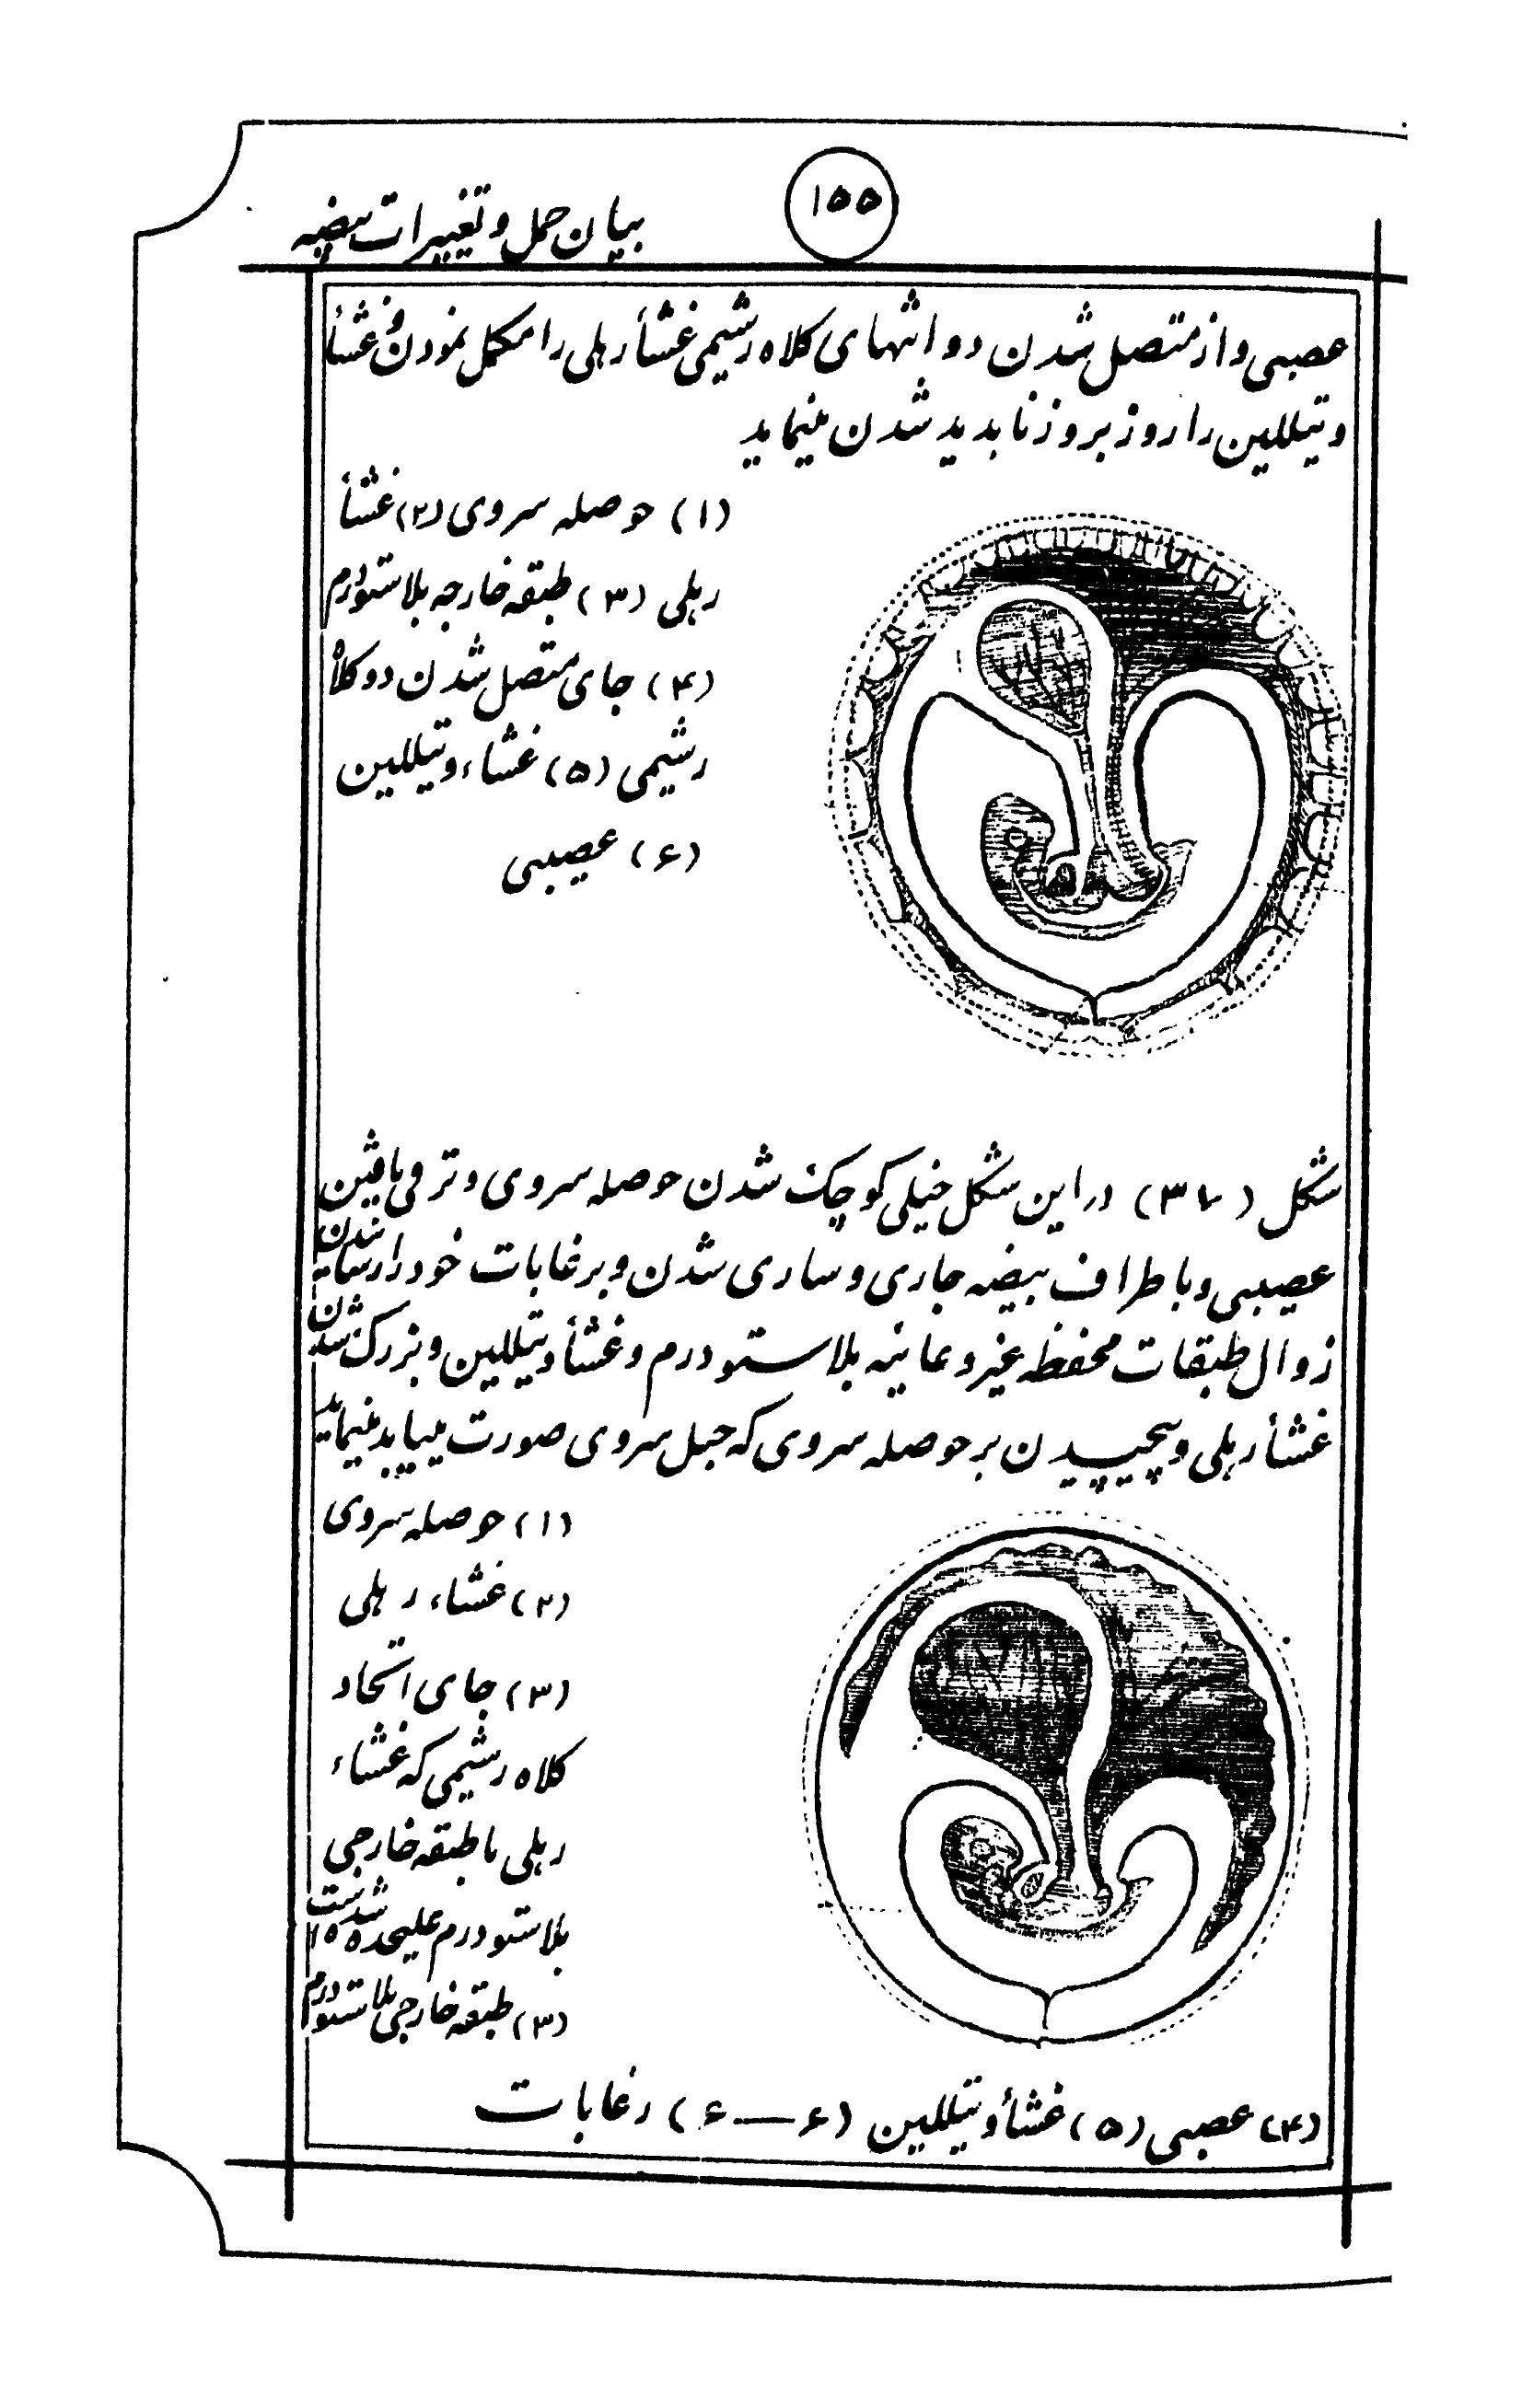 ۱۵۵
بیان حمل و تغییرات بیضه
عصبی و از متصل شدن دو انتهای کلاه رشیمی غشأ رهلی را مکمل نمودن و غشأ
وتیللین را روز بروز نابدید شدن مینماید
(۱) حوصله سروی (۲) غشأ
رهلی (۳) طبقه خارجه بلاستودرم
(۴) جای متصل شدن دو کلاه
رشیمی (۵) غشاء وتیللین
(۶) عصیبی
شکل (۳۷) در این شکل خیلی کوچک شدن حوصله سروی و ترقی یافتن
عصیبی و باطراف بیضه جاری و ساری شدن و بر غابات خود را رسانیدن
زوال طبقات محفظه غیر وعائیه بلاستودرم و غشأ وتیللین و بزرگ شدن
غشأ رهلی و پیچیدن بر حوصله سروی که حبل سروی صورت مییابد مینماید
(۱) حوصله سروی
(۲) غشاء رهلی
(۳) جای اتحاد
کلاه رشیمی که غشاء
رهلی با طبقه خارجی
بلاستودرم علیحده شده است
(۳) طبقه خارجی بلاستودرم
(۴) عصبی (۵) غشأ وتیللین (۶—۶) رغابات